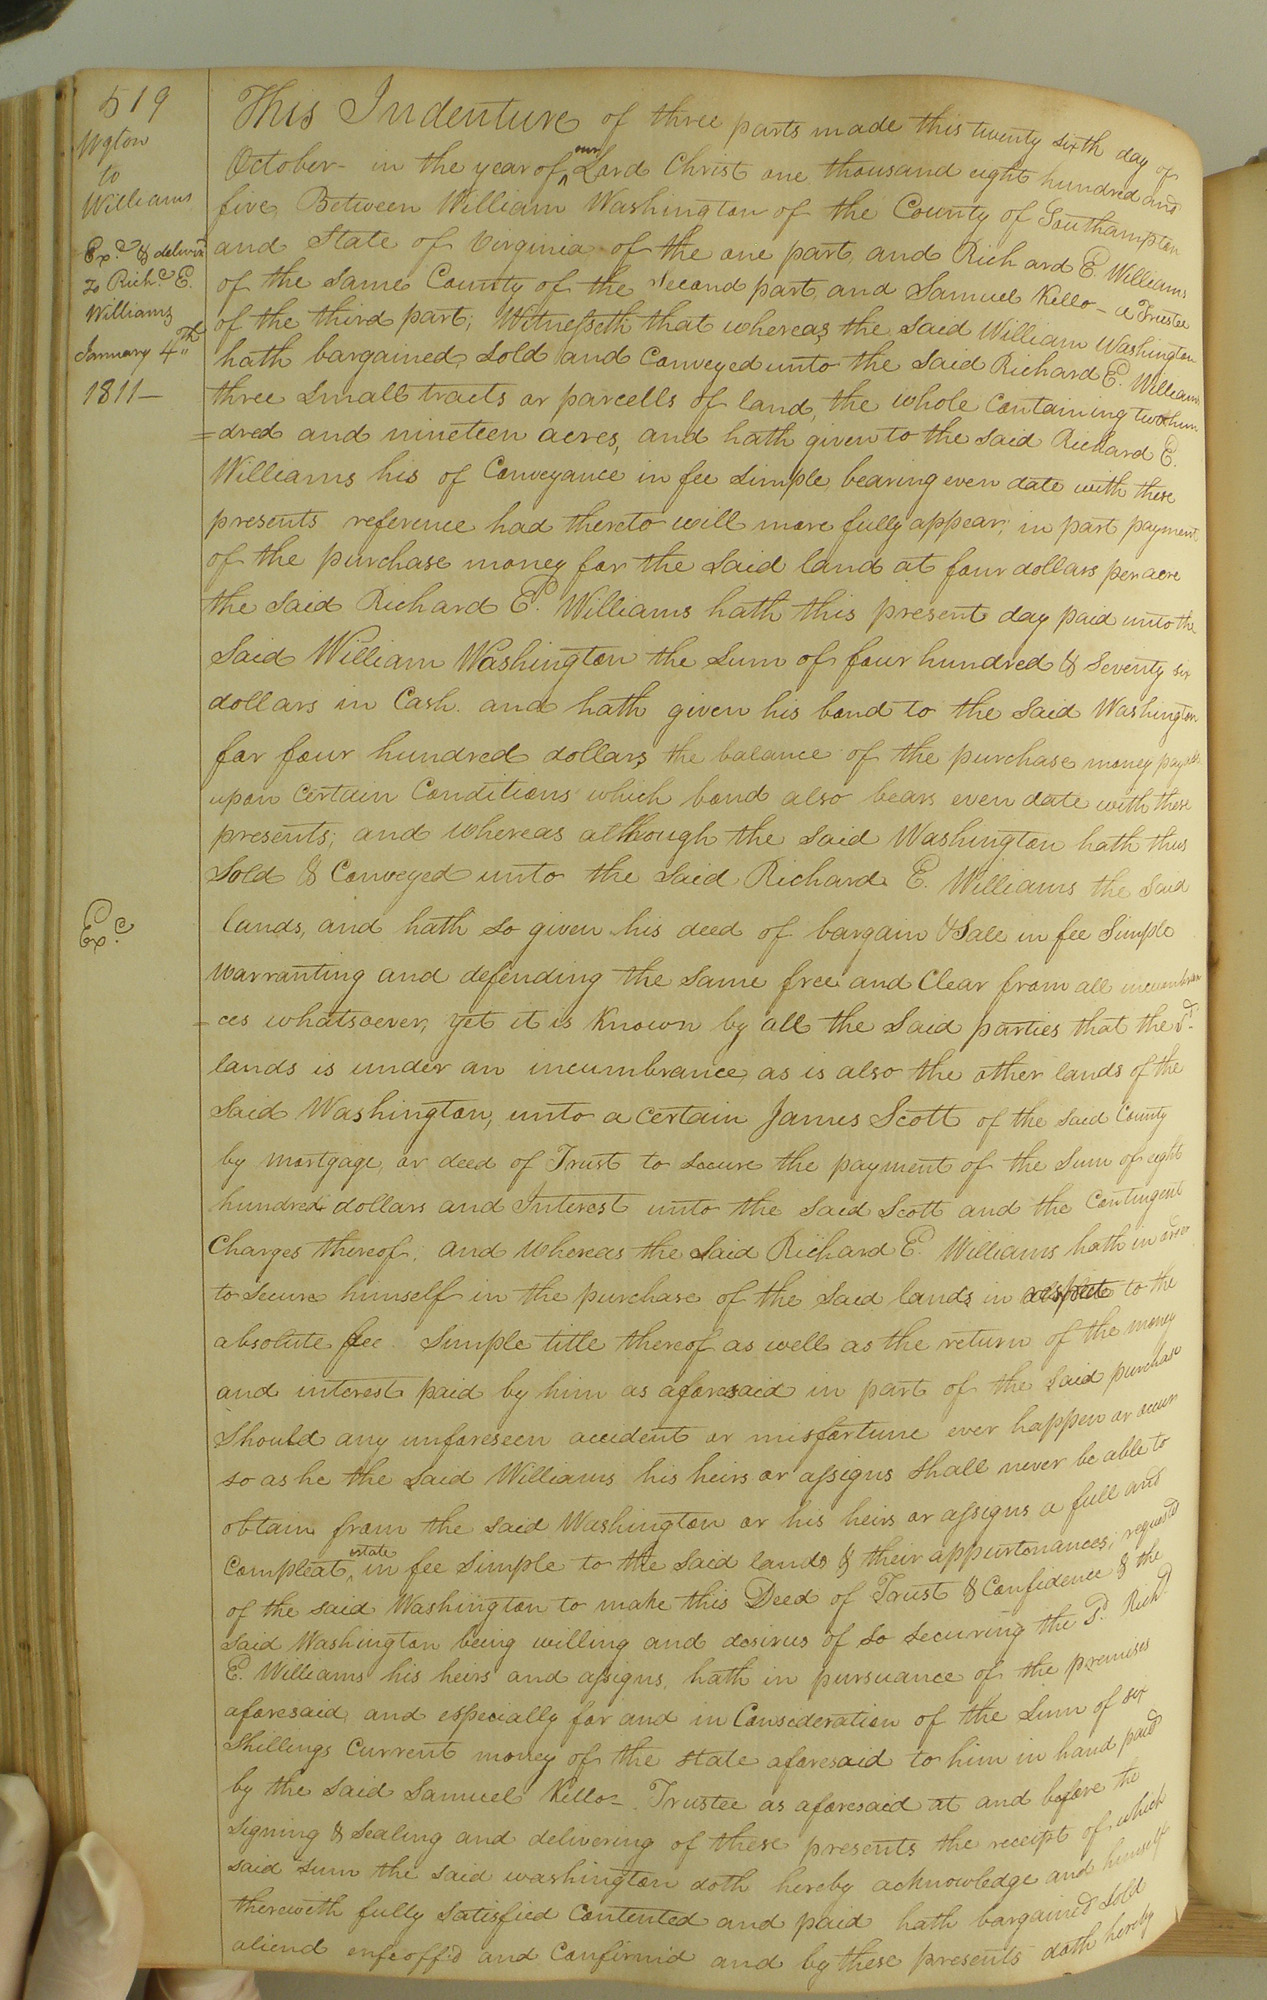 519
Wgton
to
Williams
Exd. & deliverd
to Richd. E.
Williams
January 4th
1811—
Exd.
This Indenture of three parts made this twenty sixth day of
October - in the year of our Lord Christ one thousand eight hundred and
five, Between William Washington of the County of Southampton
and State of Virginia of the one part, and Richard E. Williams
of the same County of the second part, and Samuel Kello - a Trustee
of the third part; Witnesseth that whereas the said William Washington
hath bargained, sold and Conveyed unto the said Richard E. Williams
three small tracts or parcells of land, the whole Containing two hun
=dred and nineteen acres, and hath given to the said Richard E.
Williams his of Conveyance in fee simple, bearing even date with these
presents reference had thereto will more fully appear; in part payment
of the purchase money for the said land at four dollars per acre
the said Richard E. Williams hath this present day paid unto the
said William Washington the sum of four hundred & seventy six
dollars in Cash. and hath given his bond to the said Washington
for four hundred dollars the balance of the purchase money payable
upon certain Conditions which bond also bears even date with these
presents; and whereas although the said Washington hath thus
sold & Conveyed unto the said Richard E. Williams the said
lands, and hath so given his deed of bargain & Sale in fee simple
warranting and defending the same free and Clear from all incumbran
=ces whatsoever, yet it is known by all the said parties that the sd.
lands is under an incumbrance, as is also the other lands of the
said Washington, unto a certain James Scott of the said County
by mortgage, or deed of Trust to secure the payment of the sum of eight
hundred dollars and Interest unto the said Scott and the Contingent
Charges thereof; and whereas the said Richard E. Williams hath in order
to secure himself in the purchase of the said lands in respect to the
absolute fee simple title thereof as well as the return of the money
and interest paid by him as aforesaid in part of the said purchase
should any unforeseen accident or misfortune ever happen or occur
so as he the said Williams his heirs or assigns shall never be able to
obtain from the said Washington or his heirs or assigns a full and
Compleat estate in fee simple to the said lands & their appurtonances; requested
of the said Washington to make this Deed of Trust & Confidence & the
said Washington being willing and desirus of so securing the sd. Richd.
E. Williams his heirs and assigns, hath in pursuance of the premises
aforesaid, and especially for and in Consederation of the sum of six
shillings Current money of the state aforesaid to him in hand paid
by the said Samuel Kello - Trustee as aforesaid at and before the
signing & sealing and delivering of these presents the receipt of which
said sum the said washington doth hereby acknowledge and himself
therewith fully satisfied Contented and paid hath bargained sold
aliend enfeoff'd and Confirmid and by these presents doth hereby